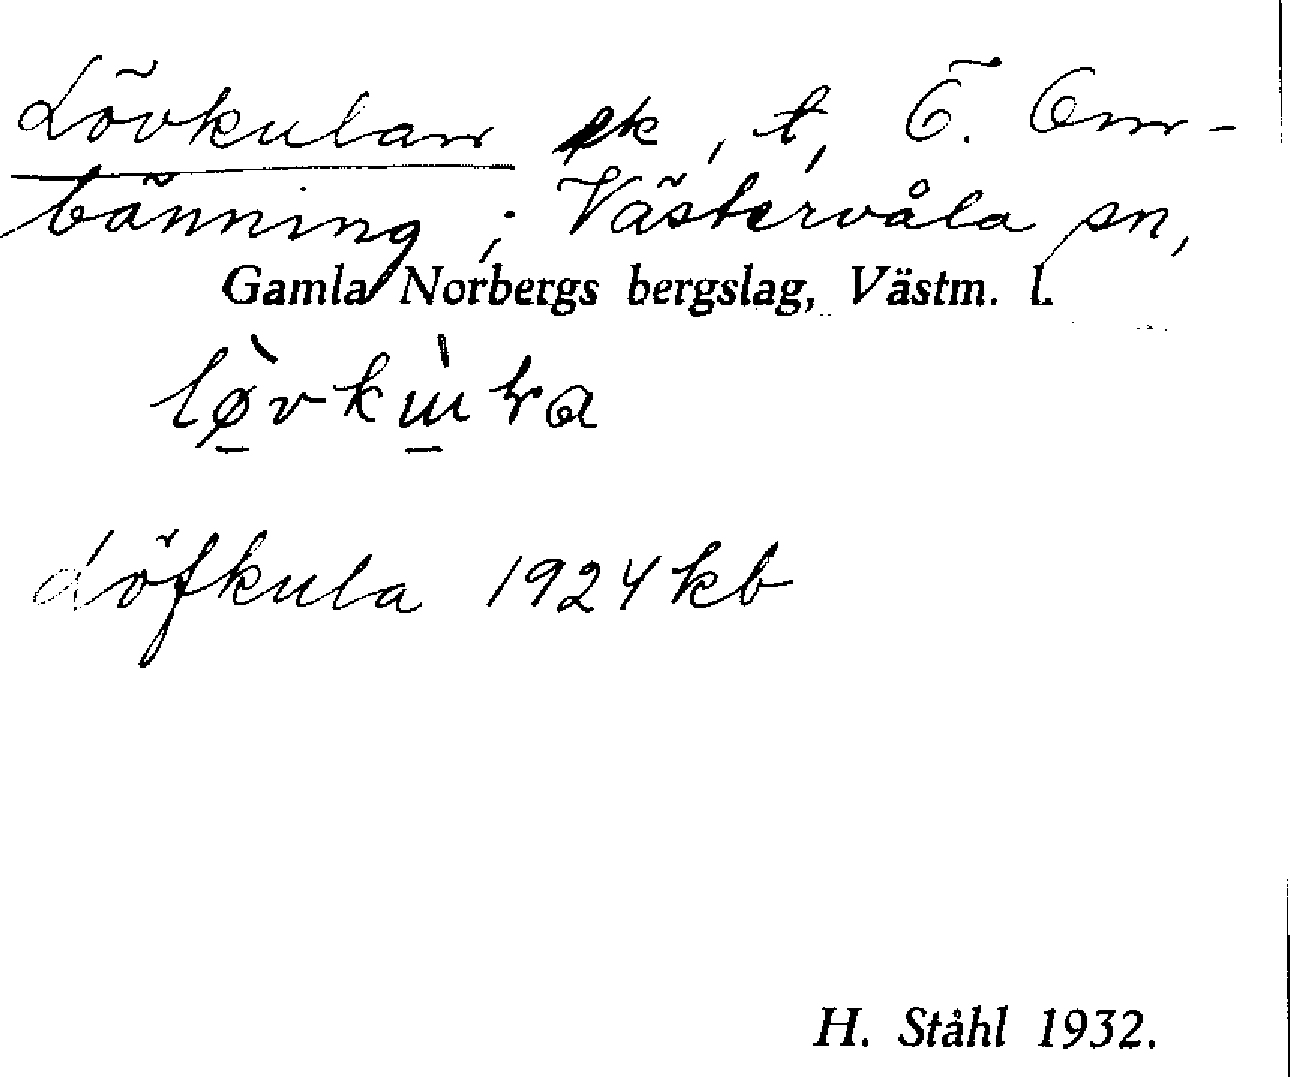 Lövkulan sk, t, Ö. Om-
bänning; Västervåla sn,
Gamla Norbergs bergslag, Västm. l.
Löfkula 1924 kb
H. Ståhl 1932.